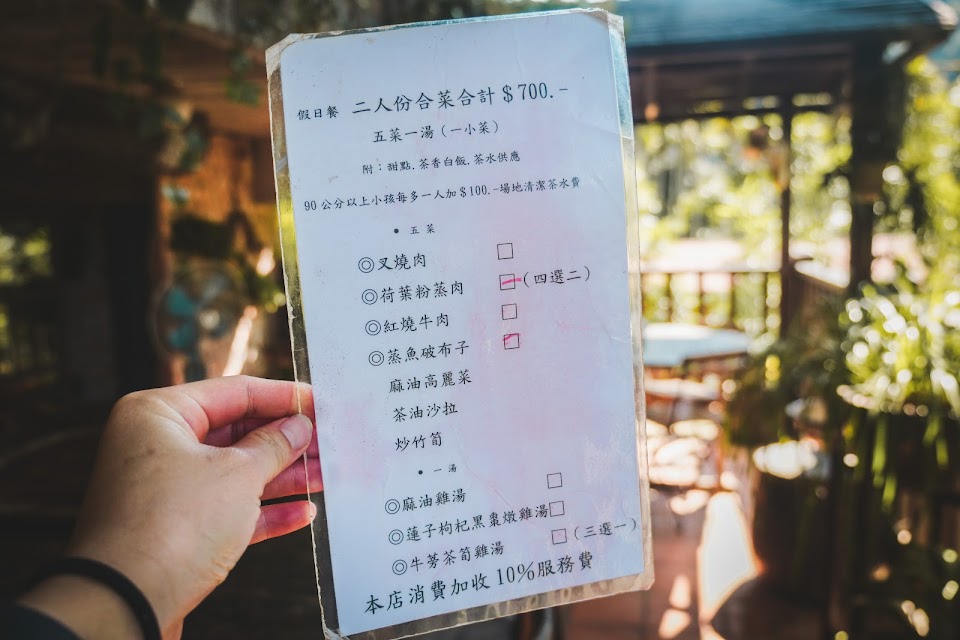 假日餐 二人份合菜合計$700.-
五菜一湯(一小菜)
附:甜點.茶香白飯.茶水供應
90公分以上小孩每多一人加$100.-場地清潔茶水費
• 五菜
◎叉燒肉 □
◎荷葉粉蒸肉 □(四選二)
◎紅燒牛肉 □
◎蒸魚破布子 □
麻油高麗菜
茶油沙拉
炒竹筍
• 一湯
◎麻油雞湯 □
◎蓮子枸杞黑棗燉雞湯□
◎牛蒡茶筍雞湯 □(三選一)
本店消費加收10%服務費